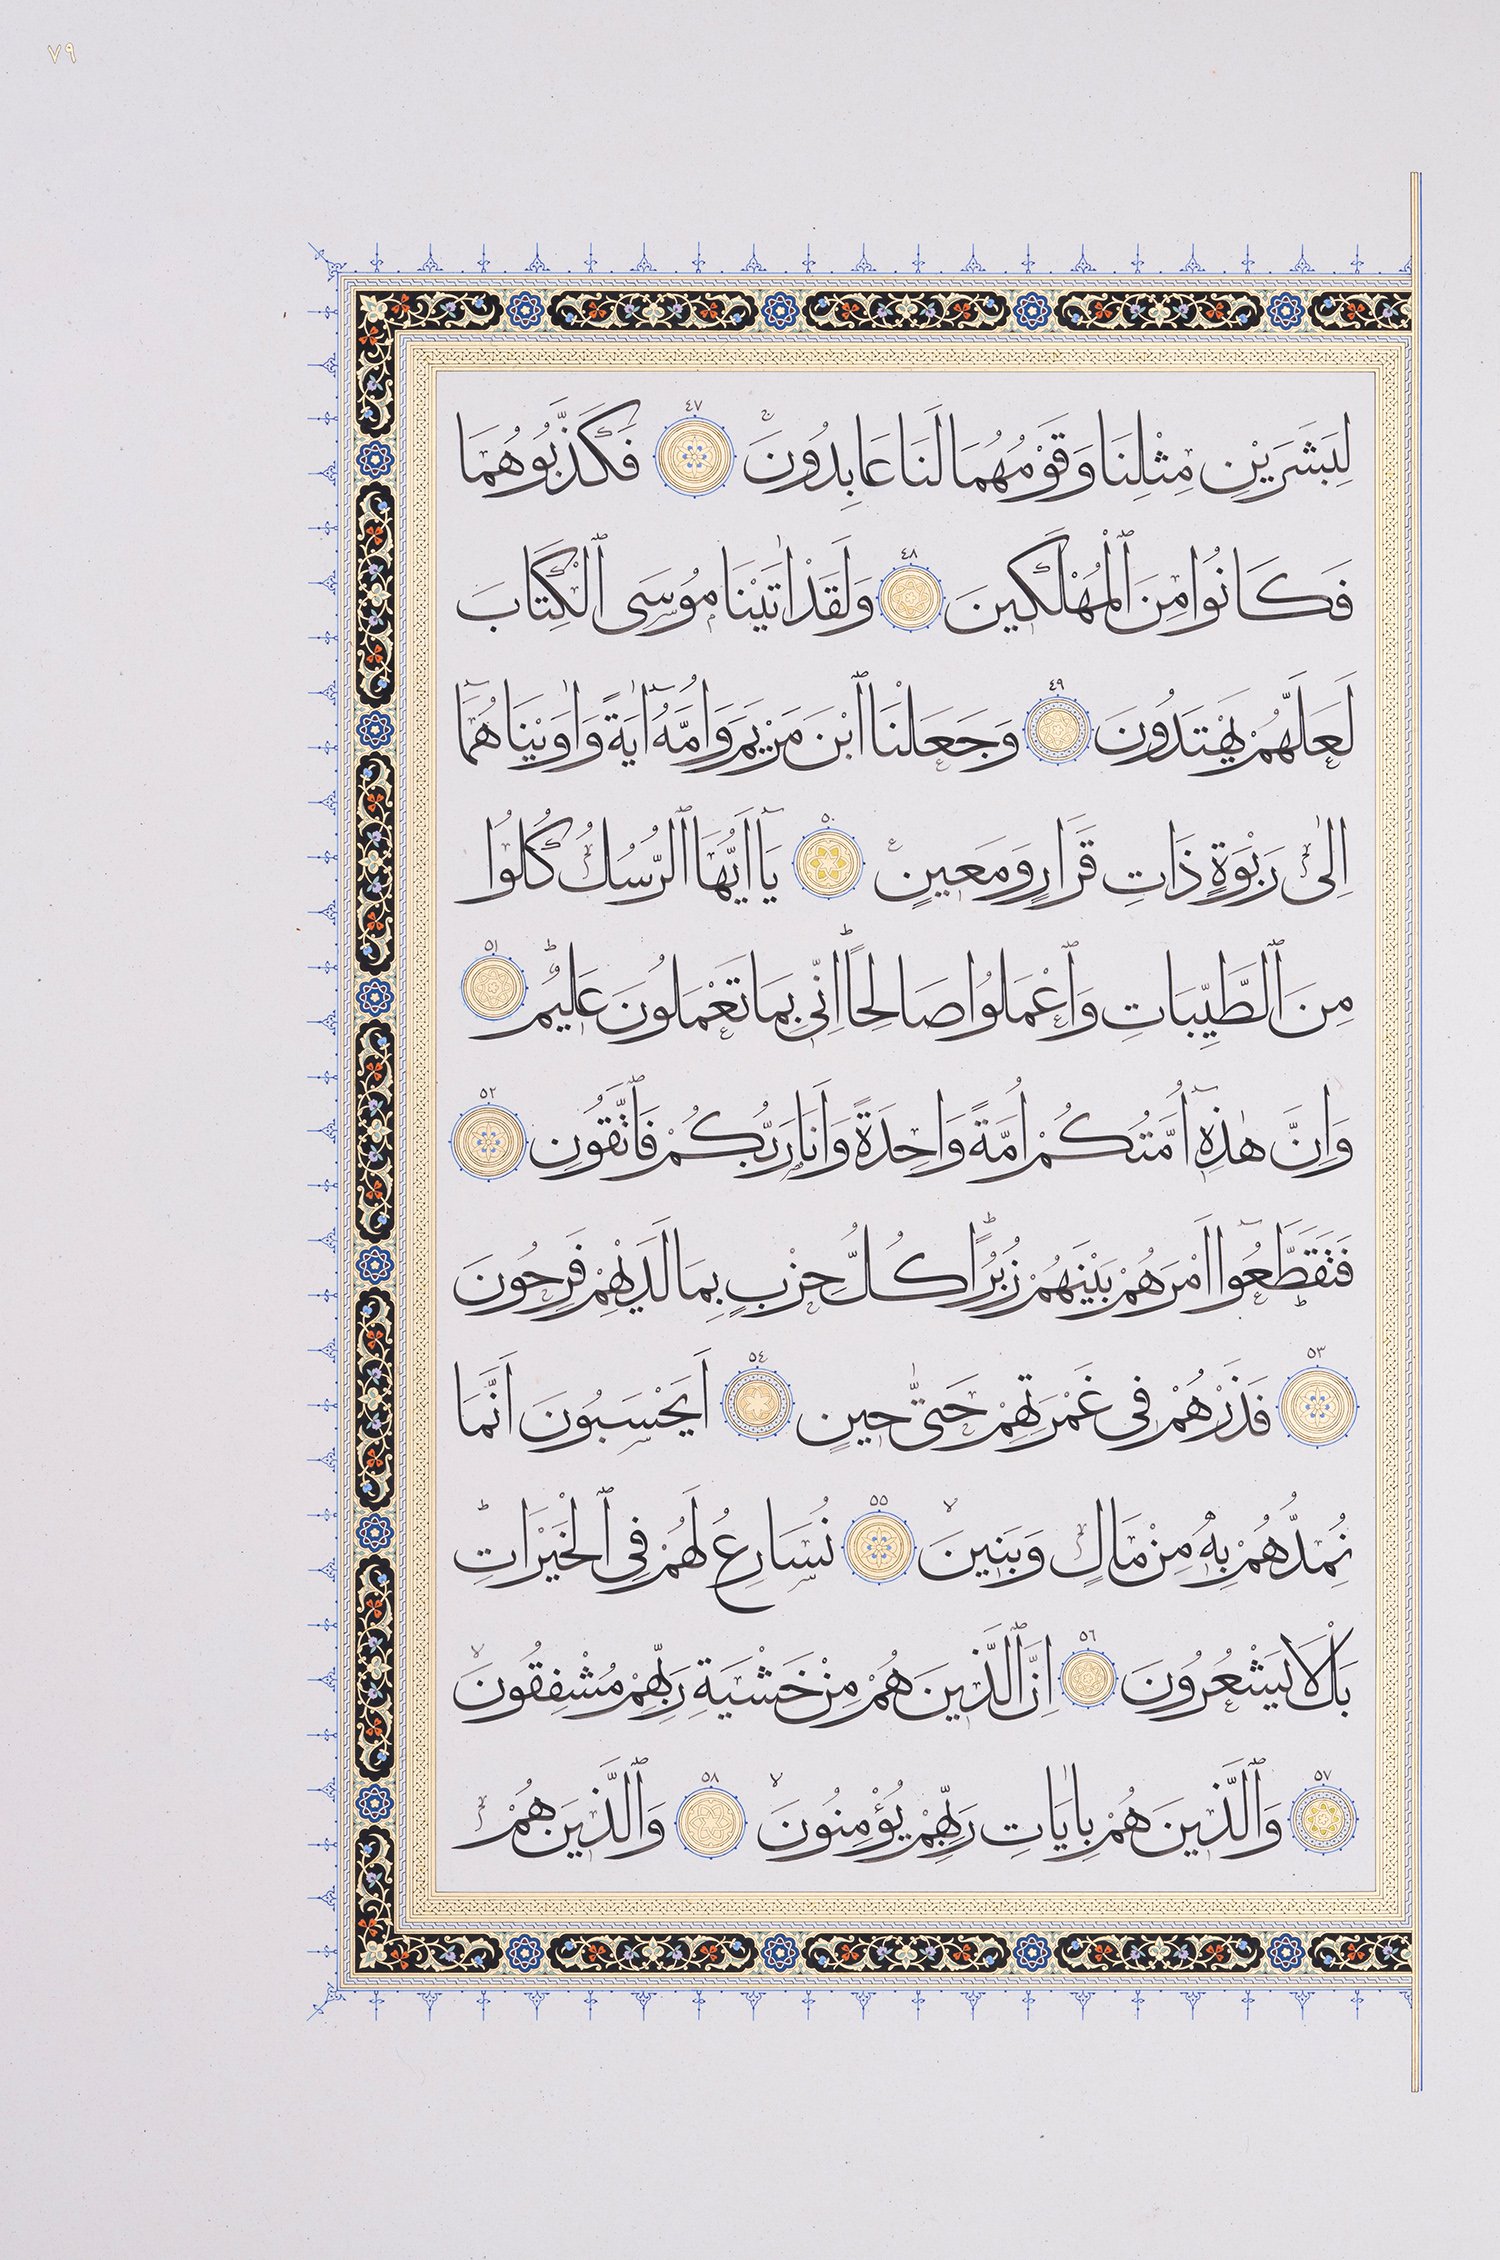 ٧٩
لِبَشَرَيْنِ مِثْلِنَا وَقَوْمُهُمَا لَنَا عَابِدُونَۚ ٤٧ فَكَذَّبُوهُمَا
فَكَانُوا مِنَ ٱلْمُهْلَكِينَ ٤٨ وَلَقَدْ اٰتَيْنَا مُوسَى ٱلْكِتَابَ
لَعَلَّهُمْ يَهْتَدُونَ ٤٩ وَجَعَلْنَا ٱبْنَ مَرْيَمَ وَاُمَّهُٓ اٰيَةً وَاٰوَيْنَاهُمَٓا
اِلٰى رَبْوَةٍ ذَاتِ قَرَارٍ وَمَعينٍ ٥٠ يَٓا اَيُّهَا ٱلرُّسُلُ كُلُوا
مِنَ ٱلطَّيِّبَاتِ وَٱعْمَلُوا صَالِحًاۜ اِنّى بِمَا تَعْمَلُونَ عَليمٌۜ ٥١
وَاِنَّ هٰذِهٓ اُمَّتُكُمْ اُمَّةً وَاحِدَةً وَاَنَا رَبُّكُمْ فَٱتَّقُونِ ٥٢
فَتَقَطَّعُٓوا اَمْرَهُمْ بَيْنَهُمْ زُبُرًاۜ كُلُّ حِزْبٍ بِمَا لَدَيْهِمْ فَرِحُونَ
٥٣ فَذَرْهُمْ فى غَمْرَتِهِمْ حَتّٰى حينٍ ٥٤ اَيَحْسَبُونَ اَنَّمَا
نُمِدُّهُمْ بِهٖ مِنْ مَالٍ وَبَنينَۙ ٥٥ نُسَارِعُ لَهُمْ فِى ٱلْخَيْرَاتِۜ
بَلْ لَا يَشْعُرُونَ ٥٦ اِنَّ ٱلَّذينَ هُمْ مِنْ خَشْيَةِ رَبِّهِمْ مُشْفِقُونَۙ
٥٧ وَٱلَّذينَ هُمْ بِاٰيَاتِ رَبِّهِمْ يُؤْمِنُونَۙ ٥٨ وَٱلَّذينَ هُمْ